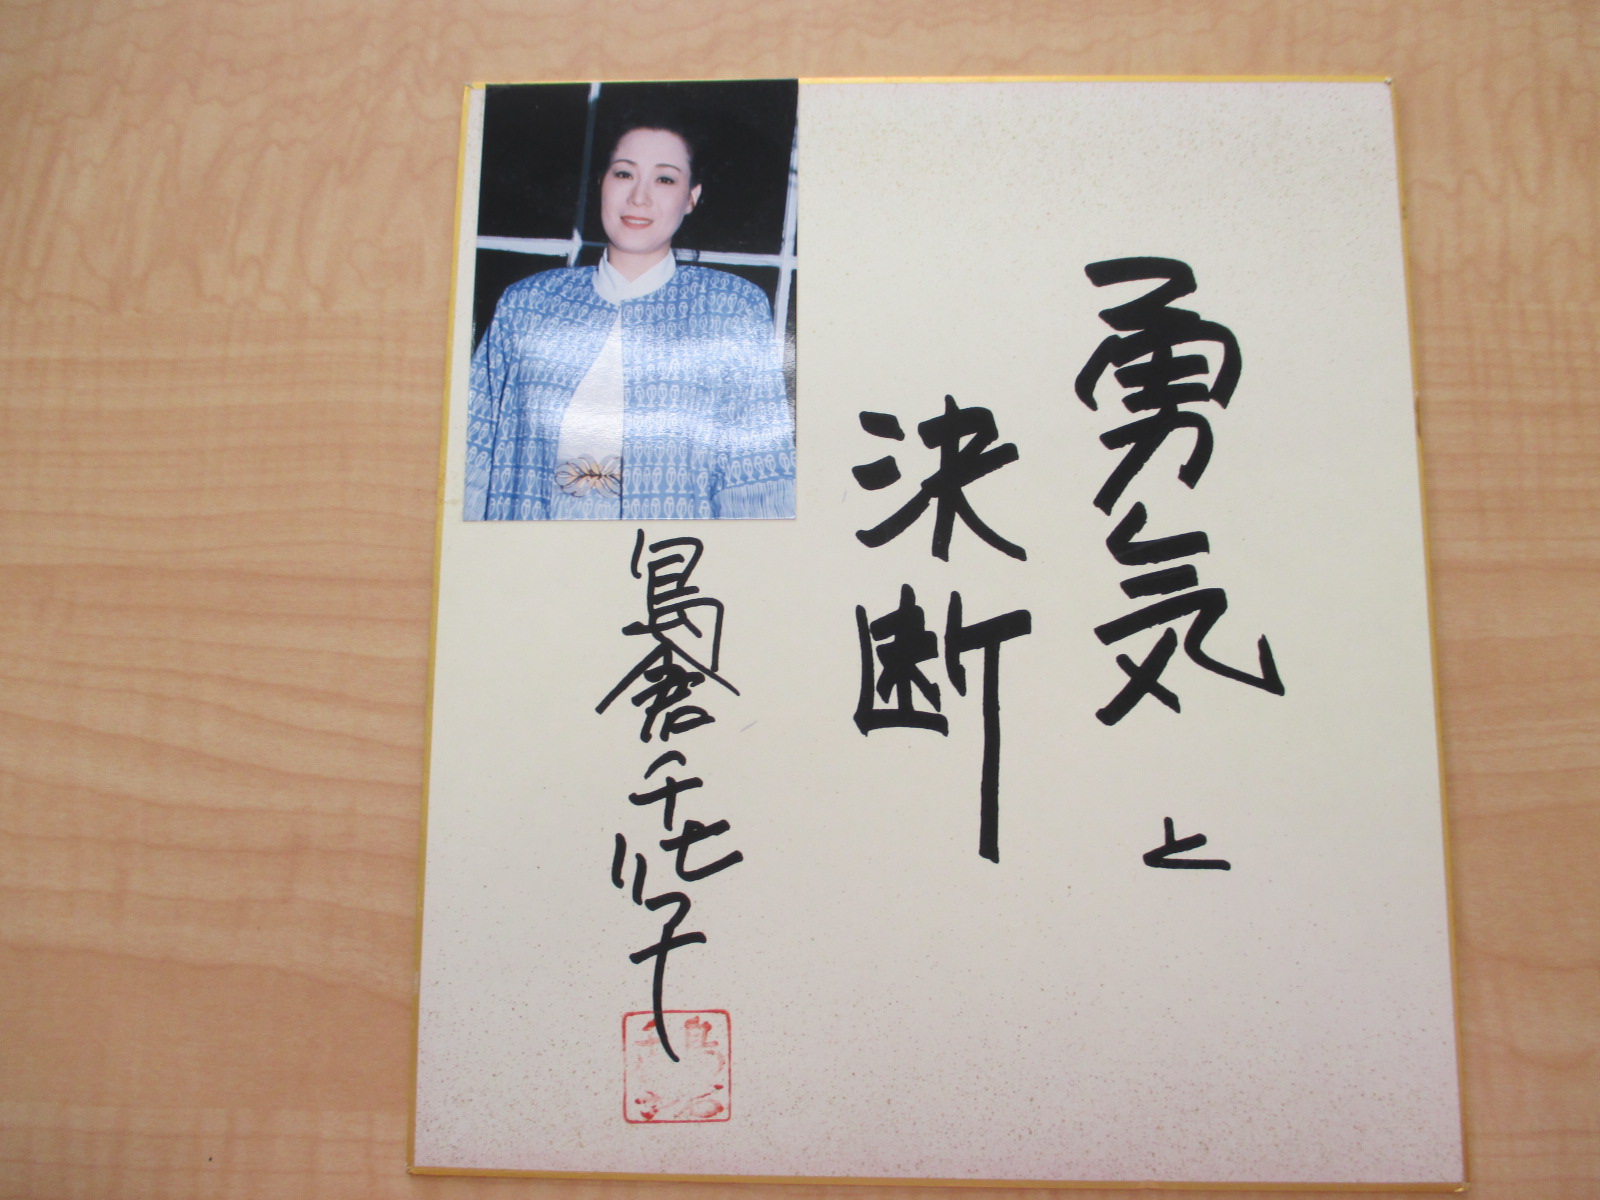 勇気と
決断
島倉千代子